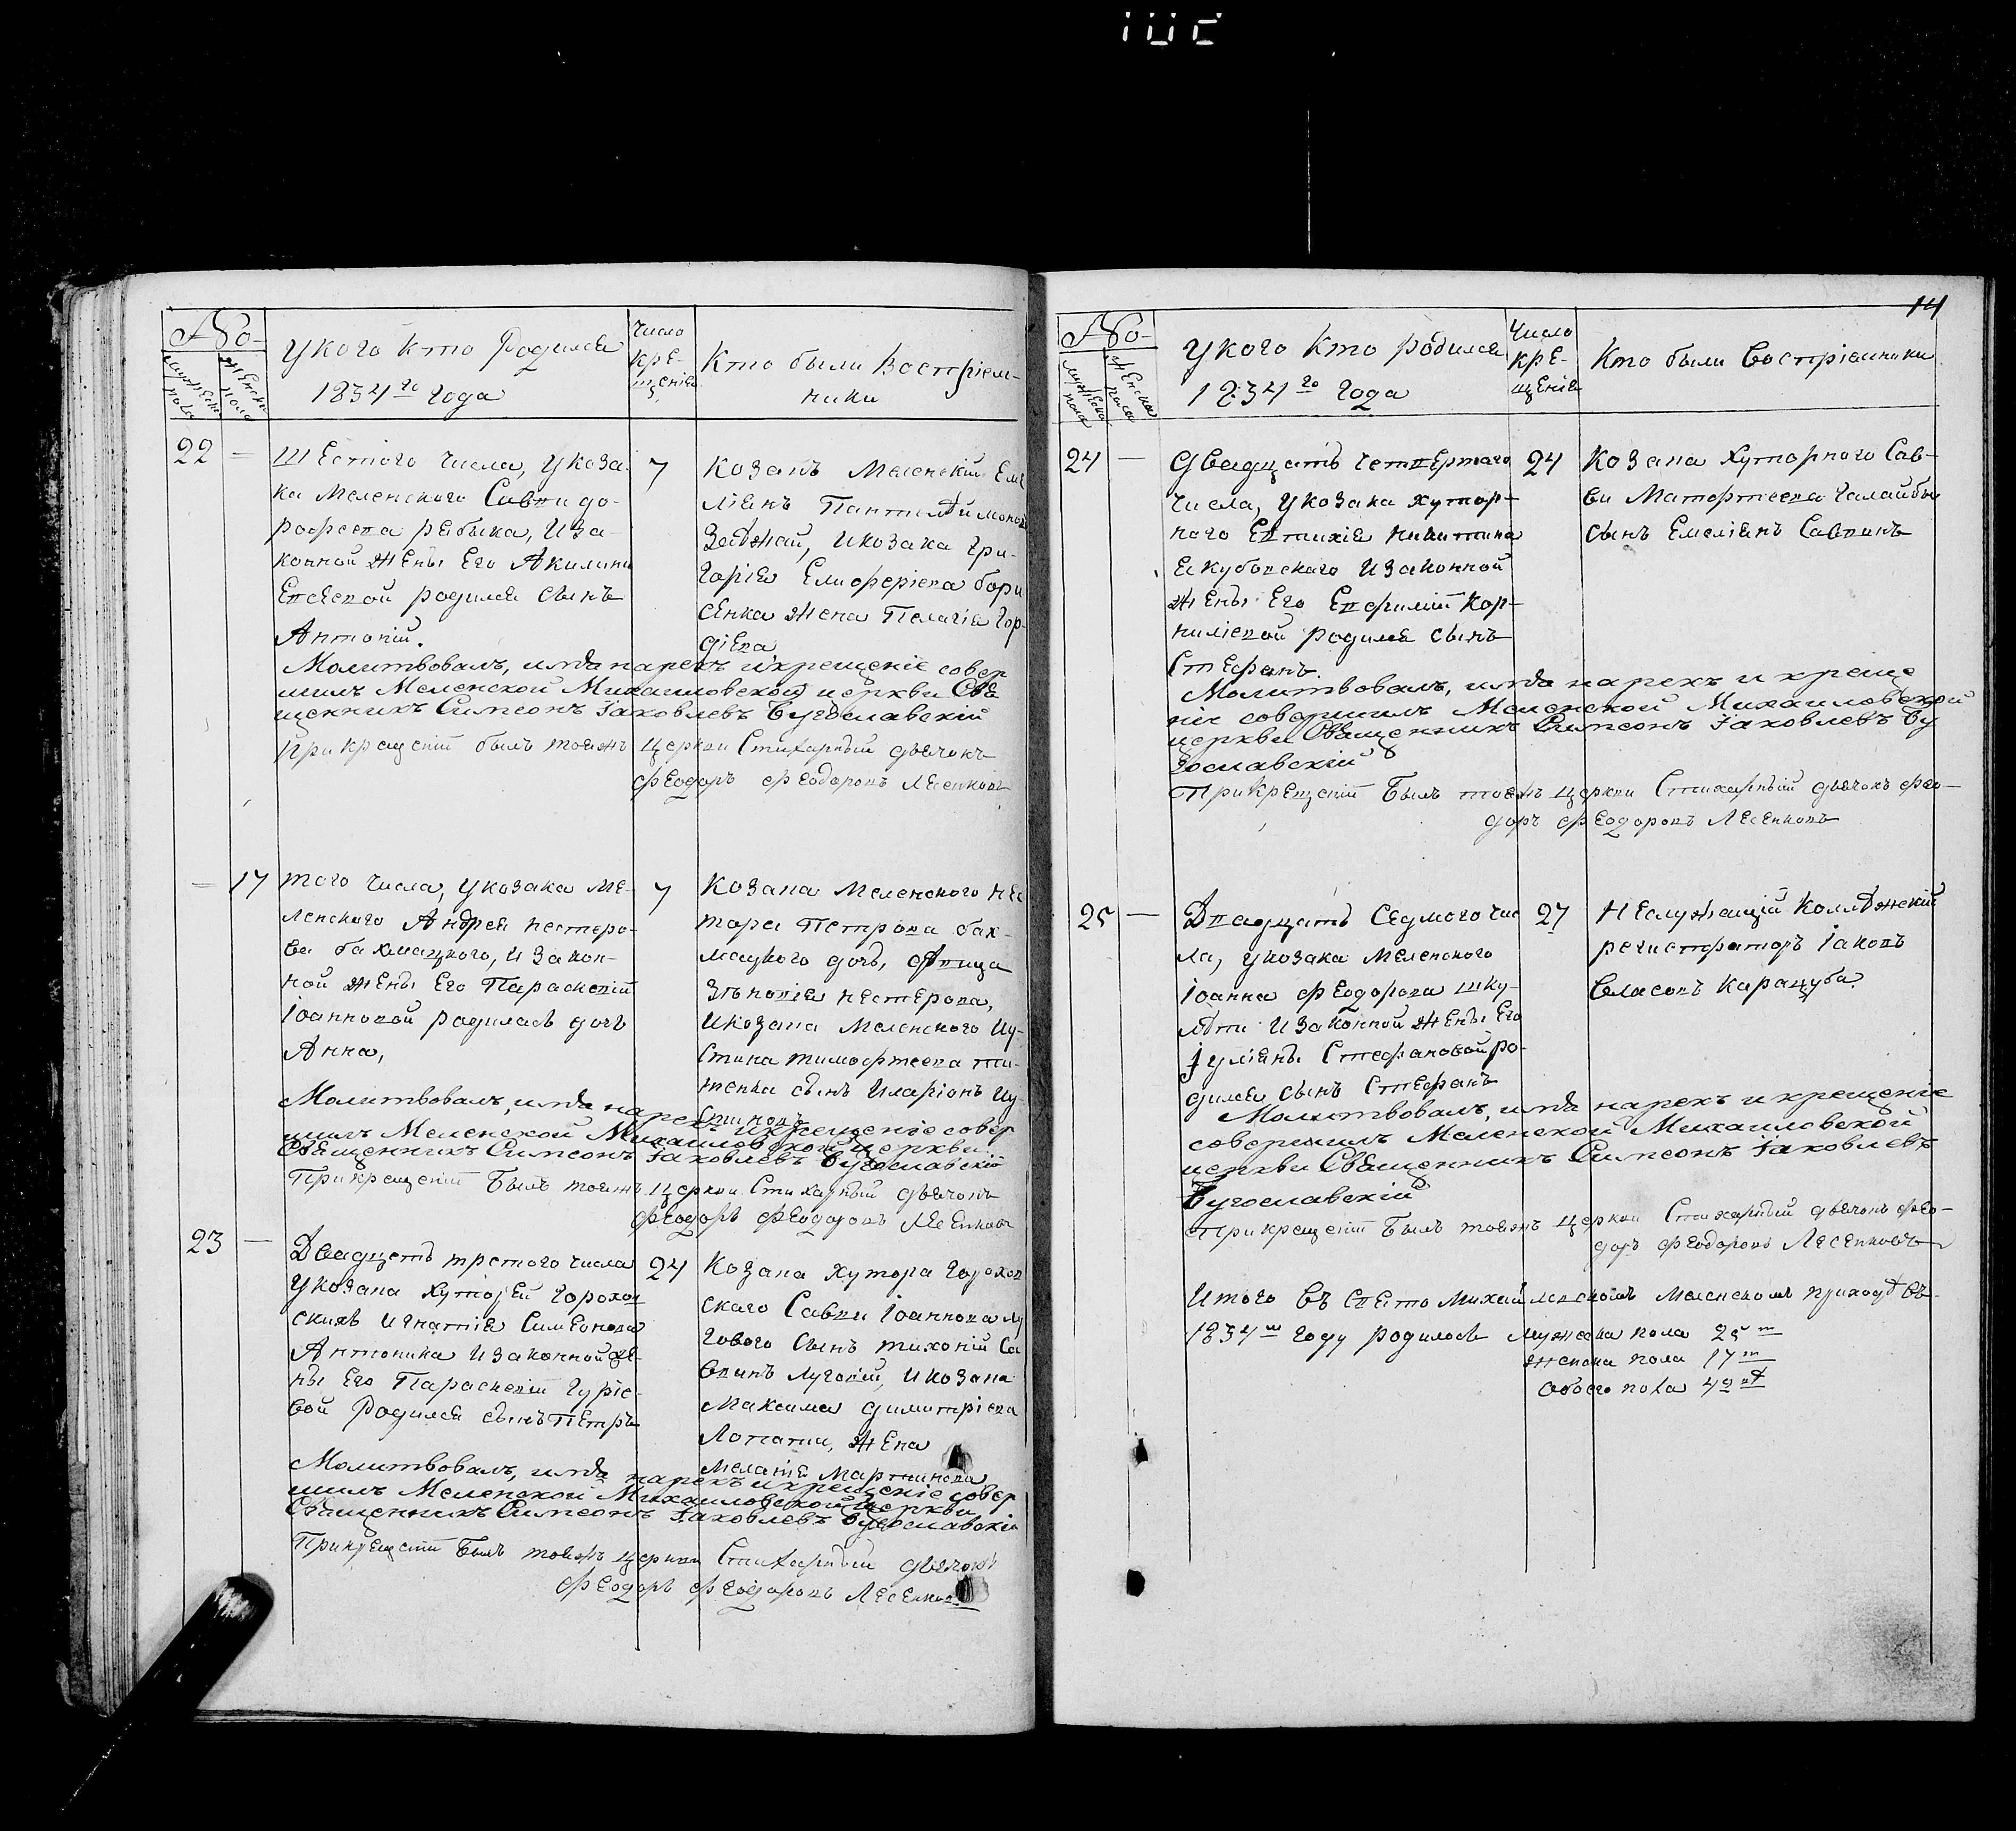 No-
мужеска пола
женска пола
У кого кто Родился
1834го года
Число
кре-
щенія
Кто были Воспріем-
ники
22
—
Шестого числа, у коза-
ка Меленского Саввы до-
рофеева рябыка, и за-
конной жены Его Акилины
Евсевой родился сынъ
Антоній.
7
Козакъ Меленскій Еме
ліянъ Пантелѣймоновъ
и козака гри-
горія Елиоферіева бори
сенка жена Пелагія гор-
діева
Молитвовалъ, имя нарекъ и крещеніе совер
шилъ Меленской Михаиловской церкви Свя
щенникъ Симеонъ Іаковлевъ Бугославскій
При крещеніи былъ тоежъ церкви Стихарный дьячокъ
Феодоръ Феодоровъ Лесенковъ
—
17
того числа, у козака Ме-
ленского Андрея нестеро-
ва бахмацкого, и закон-
ной жены Его Параскевіи
Іоанновой родилась дочь
Анна,
7
Козака Меленского нес
тора Петрова бах-
мацкого дочь, Авица
Зѣновія нестерова,
и козака Меленского Иу-
стина тимофеева ти-
тенка сынъ Иларіонъ Иу-
стиновъ
Молитвовалъ, имя нарекъ и крещеніе совер
шилъ Меленской Михаиловской церкви
Священникъ Симеонъ Іаковлевъ Бугославскій
При крещеніи Былъ тоежъ церкви Стихарный дьячокъ
Феодоръ Феодоровъ Лесенковъ
23
—
Двадцеть третого числа
у козака Хуторей горохов
скихъ игнатія Симеонова
Антоника и законной же-
ны Его Параскевіи гуріе-
вой Родился сынъ Петръ
24
Козака Хутора горохов
ского Саввы Іоаннова лу
гового сынъ тихоній Са
ввинъ луговій, и козака
Максима димитріева
Лопати, жена
Меланія Мартинова
Молитвовалъ, имя нарекъ и крещеніе совер
шилъ Меленской Михаиловской церкви
Священникъ Симеонъ Іаковлевъ Бугославскій
При крещеніи Былъ тоежъ церкви Стихарный дьячокъ
Феодоръ Феодоровъ Лесенковъ
14
No-
мужеска пола
женска пола
У кого кто родился
1834го года
Число
кре-
щенія
Кто были Воспріемники
24
—
Двадцать четвертого
числа, у козака хутор-
ного Евтихія никитина
якубовского и законной
жены Его Евфиміи кор-
ниліевой родился сынъ
Стефанъ.
24
Козака Хуторного Сав-
ви галайбы
сынъ Емеліянъ Саввинъ
Молитвовалъ, имя нарекъ и креще
ніе совершилъ Меленской Михаиловской
церкви Священникъ Симеонъ Іаковлевъ Бу
гославскій
При крещеніи Былъ тоежъ церкви Стихарный дьячокъ Фео-
доръ Феодоровъ Лесенковъ
25
—
Двадцать Седмого чис
ла, у козака Меленского
Іоанна Феодорова шку-
и законной жены Его
Іуліяны Стефановой ро-
дился сынъ Стефанъ
27
Неслужащій Коллѣжскій
регистраторъ Іаковъ
Власовъ Карацуба
Молитвовалъ, имя нарекъ и крещеніе
совершилъ Меленской Михаиловской
церкви Священникъ Симеонъ Іаковлевъ
Бугославскій
При крещеніи Былъ тоежъ церкви Стихарный дьячокъ Фео-
доръ Феодоровъ Лесенковъ
Итого въ Свято Михайловскомъ Меленскомъ приходѣ въ
1834м году родилось мужеска пола 25т
женска пола 17т
Обоего пола 42